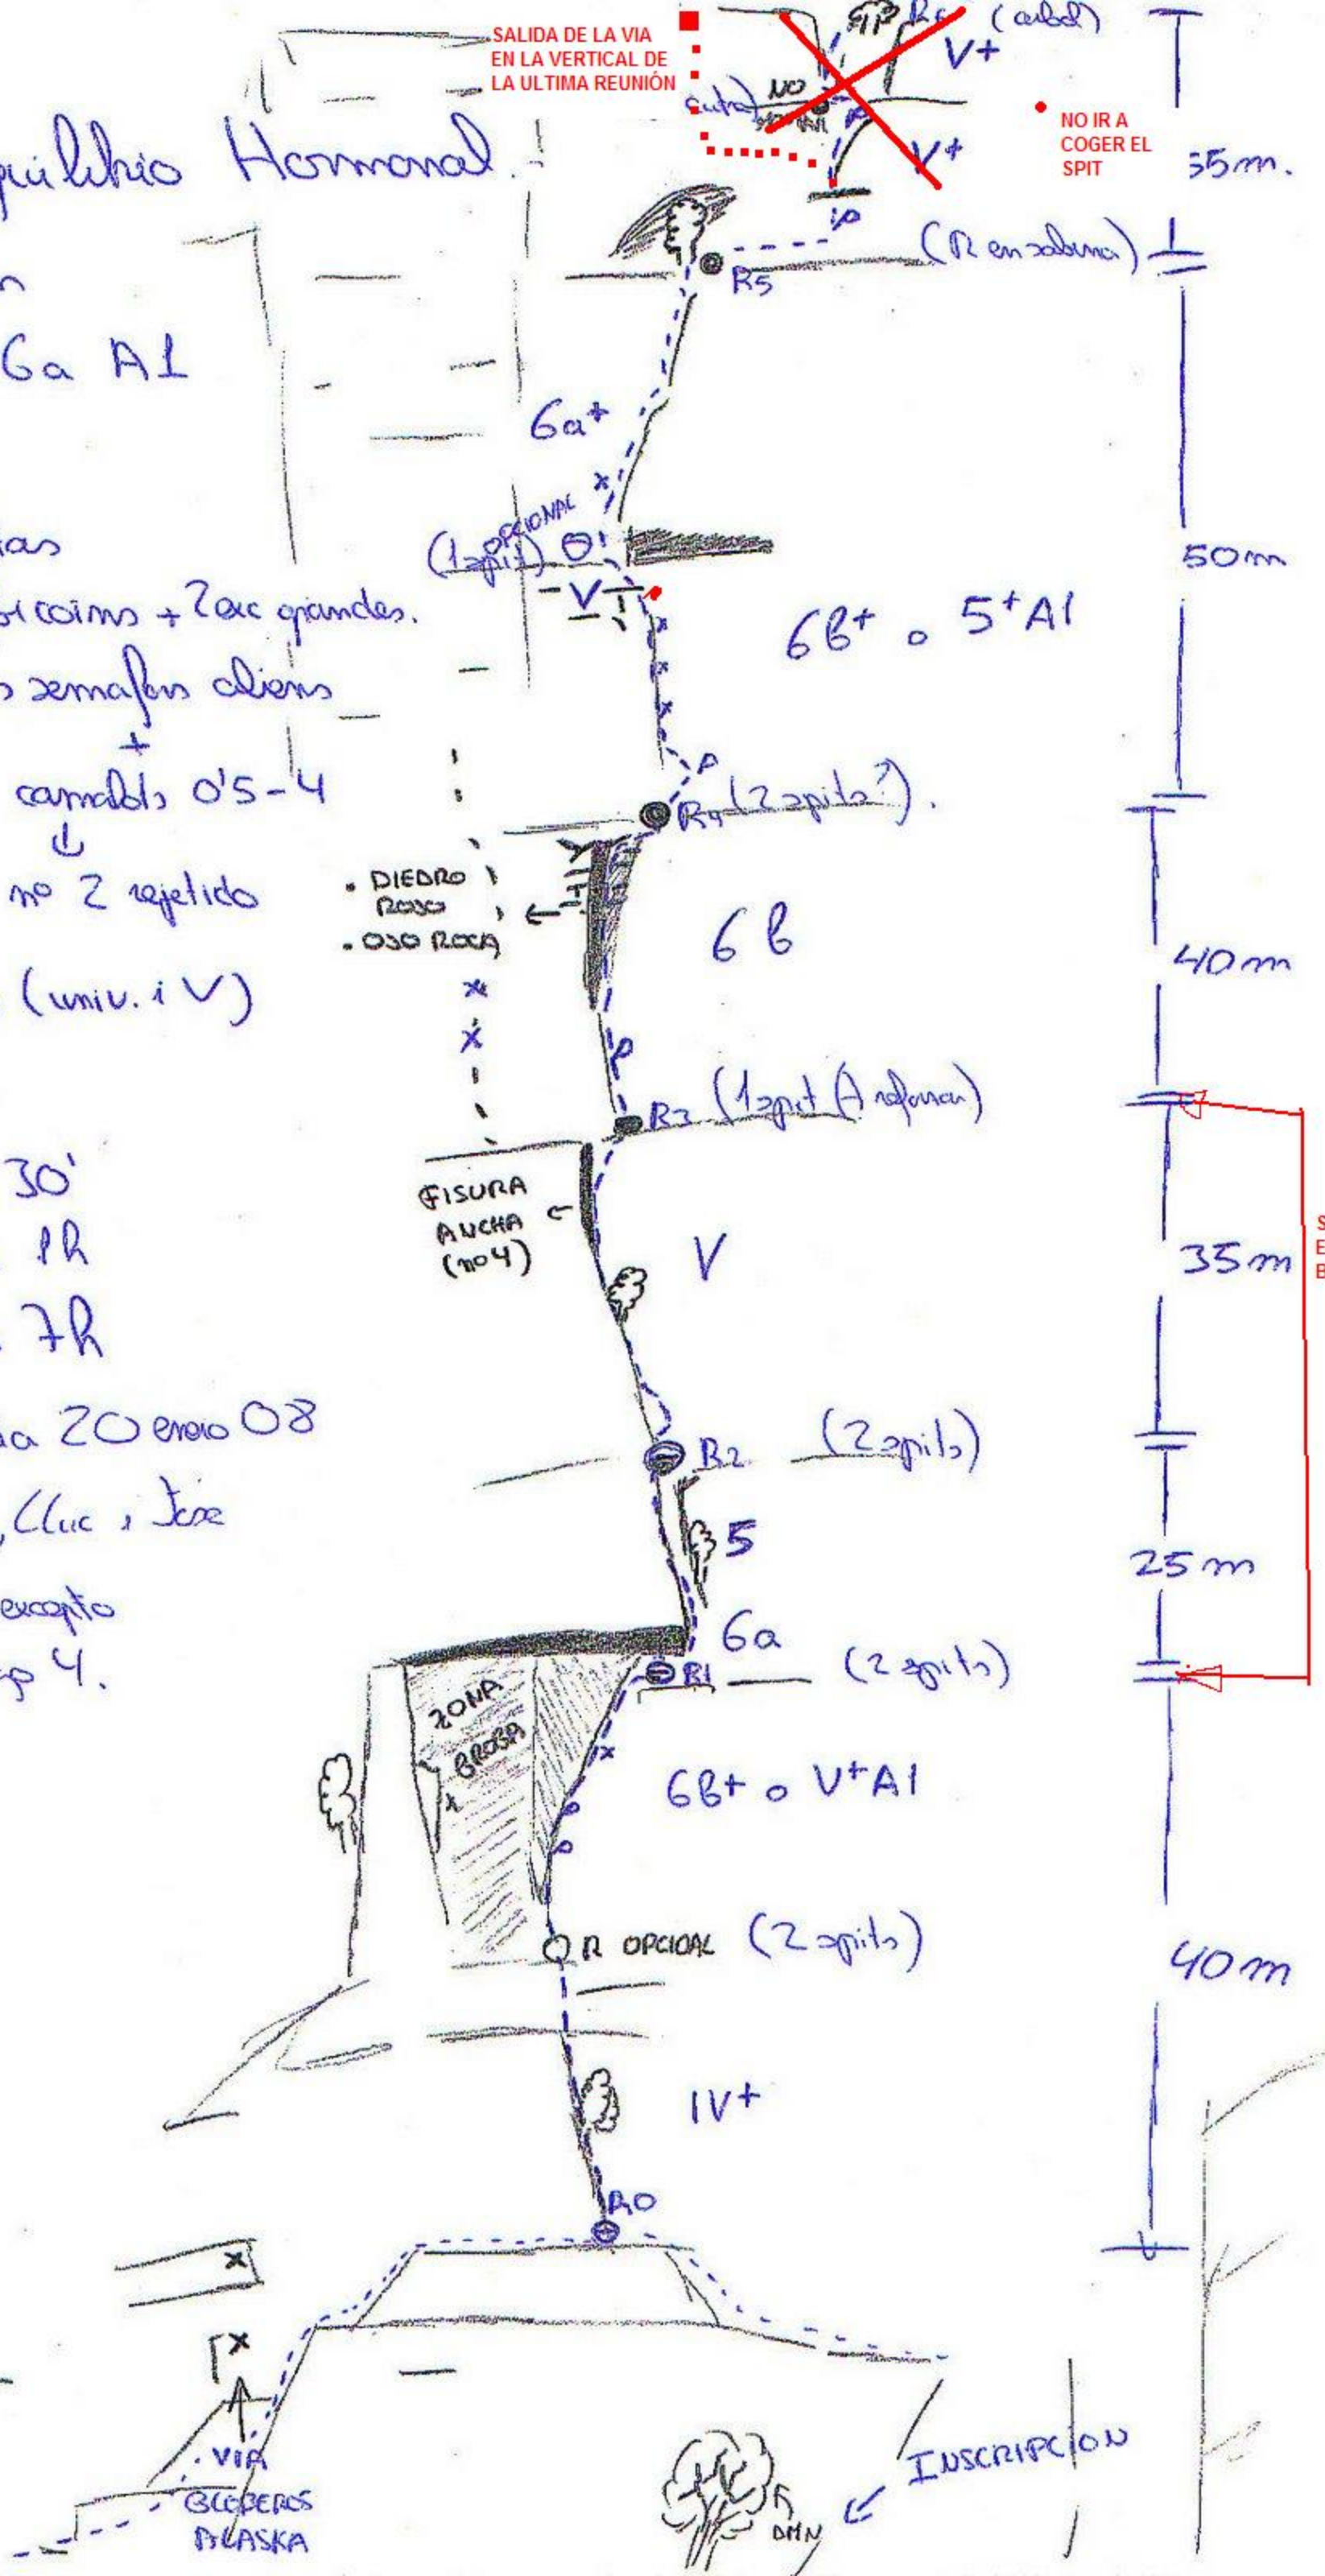 SALIDA DE LA VIA
EN LA VERTICAL DE
LA ULTIMA REUNIÓN
R6 (arbol)
V+
NO
V+
NO IR A
COGER EL
SPIT
35m.
quilibrio Hormonal.
(R en sabina)
R5
6a A1
6a+
OPCIONAL
(1spit)
V
50m
6b+ o 5+A1
ias
sicoins + 2 exc grandes.
semafors aliens
+
camalots 0'5-4
nº 2 repetido
(univ. i V)
R4 (2spits?).
. DIEDRO
ROJO
. OJO ROCA
6b
40m
R3 (1spit (A reforzar)
FISURA
ANCHA
(nº4)
V
35m
S
E
B
30'
1h
7h
a 20 enero 08
, Lluc i Jose
excepto
4.
R2 (2spits)
5
25m
6a
R1 (2spits)
ZONA
BROSA
6b+ o V+A1
R OPCIOAL (2spits)
40m
IV+
R0
VIA
BLOBEROS
ALASKA
INSCRIPCION
DMN